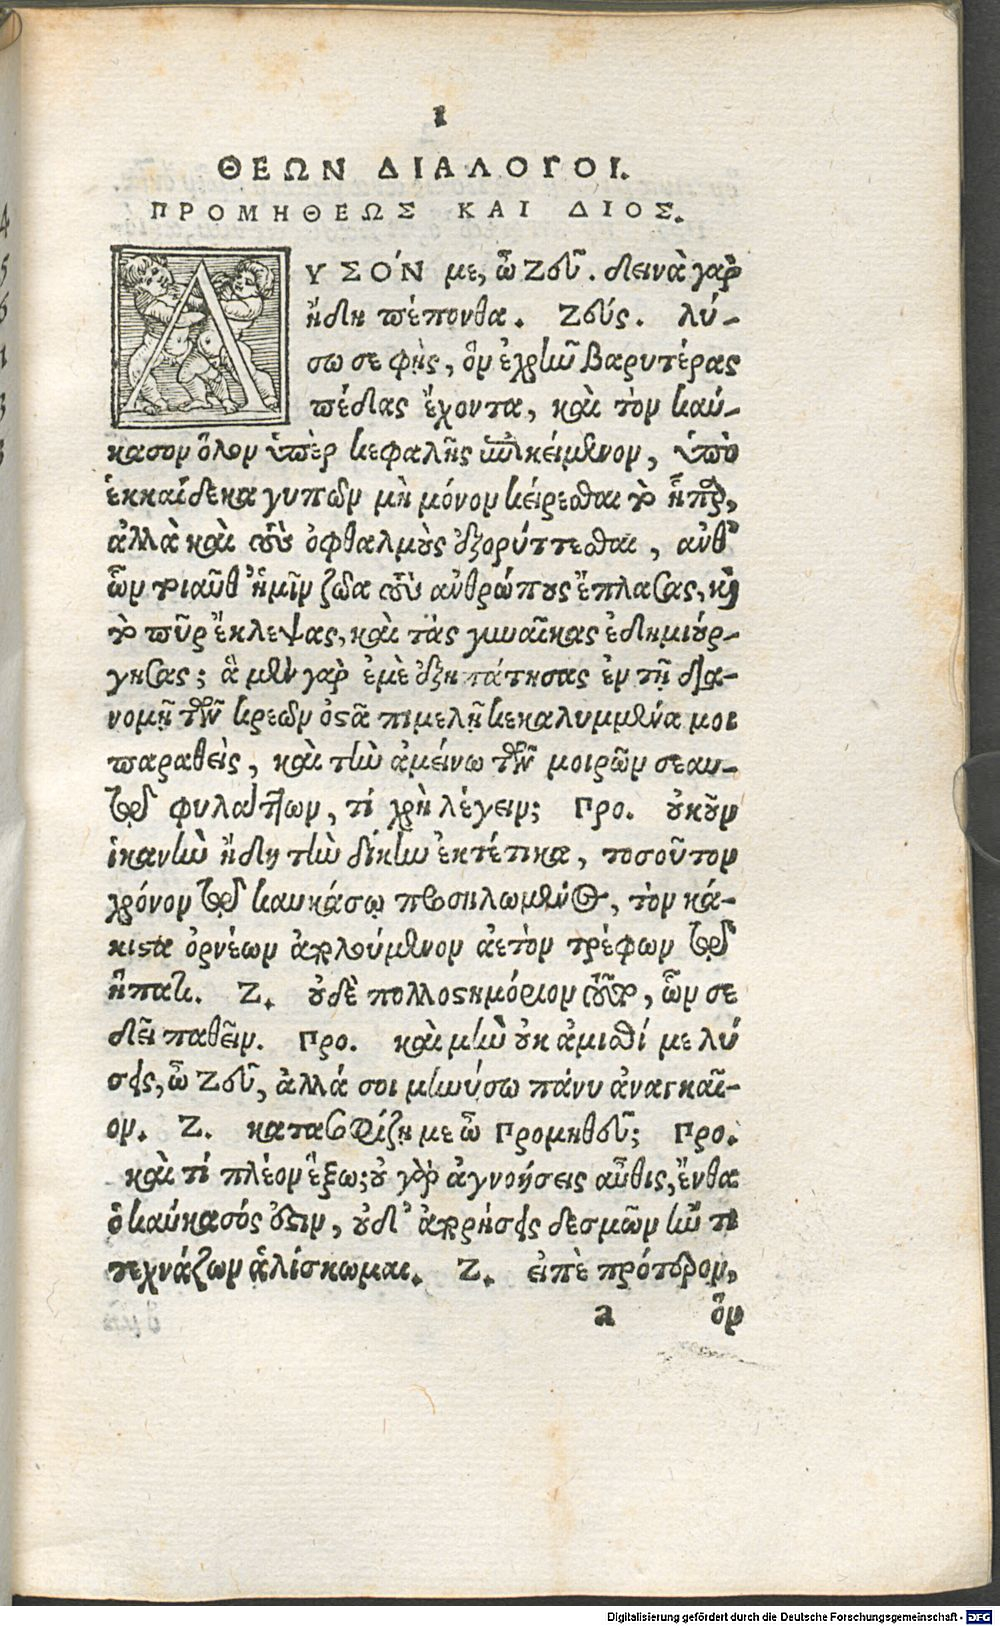 1
ΘΕΩΝ ΔΙΑΛΟΓΟΙ.
ΠΡΟΜΗΘΕΩΣ ΚΑΙ ΔΙΟΣ.
ΛΥΣΟ´Ν με, ὦ Ζεῦ. δεινὰ γὰρ
ἤδη πέπονθα. Ζεύς. λύ-
σω σε φῂς, ὃν ἐχρῆν βαρυτέρας
πέδας ἔχοντα, καὶ τὸν καύ-
κασον ὅλον ὑπὲρ κεφαλῆς ἐπικείμενον, ὑπὸ
ἑκκαίδεκα γυπῶν μὴ μόνον κείρεσθαι τὸ ἧπαρ,
ἀλλὰ καὶ τοὺς ὀφθαλμοὺς ἐξορύττεσθαι, ἀνθ’
ὧν τοιαῦθ’ ἡμῖν ζῶα τοὺς ἀνθρώπους ἔπλασας, καὶ
τὸ πῦρ ἔκλεψας, καὶ τὰς γυναῖκας ἐδημιούρ-
γησας; ἃ μὲν γὰρ ἐμὲ ἐξηπάτησας ἐν τῇ δια-
νομῇ τῶν κρεῶν ὀστᾶ πιμελῇ κεκαλυμμένα μοι
παραθεὶς, καὶ τὴν ἀμείνω τῶν μοιρῶν σεαυ-
τῷ φυλάττων, τί χρὴ λέγειν; Προ. οὐκοῦν
ἱκανὴν ἤδη τὴν δίκην ἐκτέτικα, τοσοῦτον
χρόνον τῷ καυκάσῳ προσηλωμένος, τὸν κά-
κιστα ὀρνέων ἀπολούμενον ἀετὸν τρέφων τῷ
ἥπατι. Ζ. οὐδὲ πολλοστημόριον τοῦτο, ὧν σε
δεῖ παθεῖν. Προ. καὶ μὴν οὐκ ἀμισθί με λύ
σεις, ὦ Ζεῦ, ἀλλά σοι μηνύσω πάνυ ἀναγκαῖ-
ον. Ζ. κατασοφίζῃ με ὦ Προμηθεῦ; Προ.
καὶ τί πλέον ἕξω; οὐ γὰρ ἀγνοήσεις αὖθις, ἔνθα
ὁ καύκασός ἐστιν, οὐδ’ ἀπορήσεις δεσμῶν ἤν τι
τεχνάζων ἁλίσκωμαι. Ζ. εἰπὲ πρότερον,
a ὃν
Digitalisierung gefördert durch die Deutsche Forschungsgemeinschaft - DFG